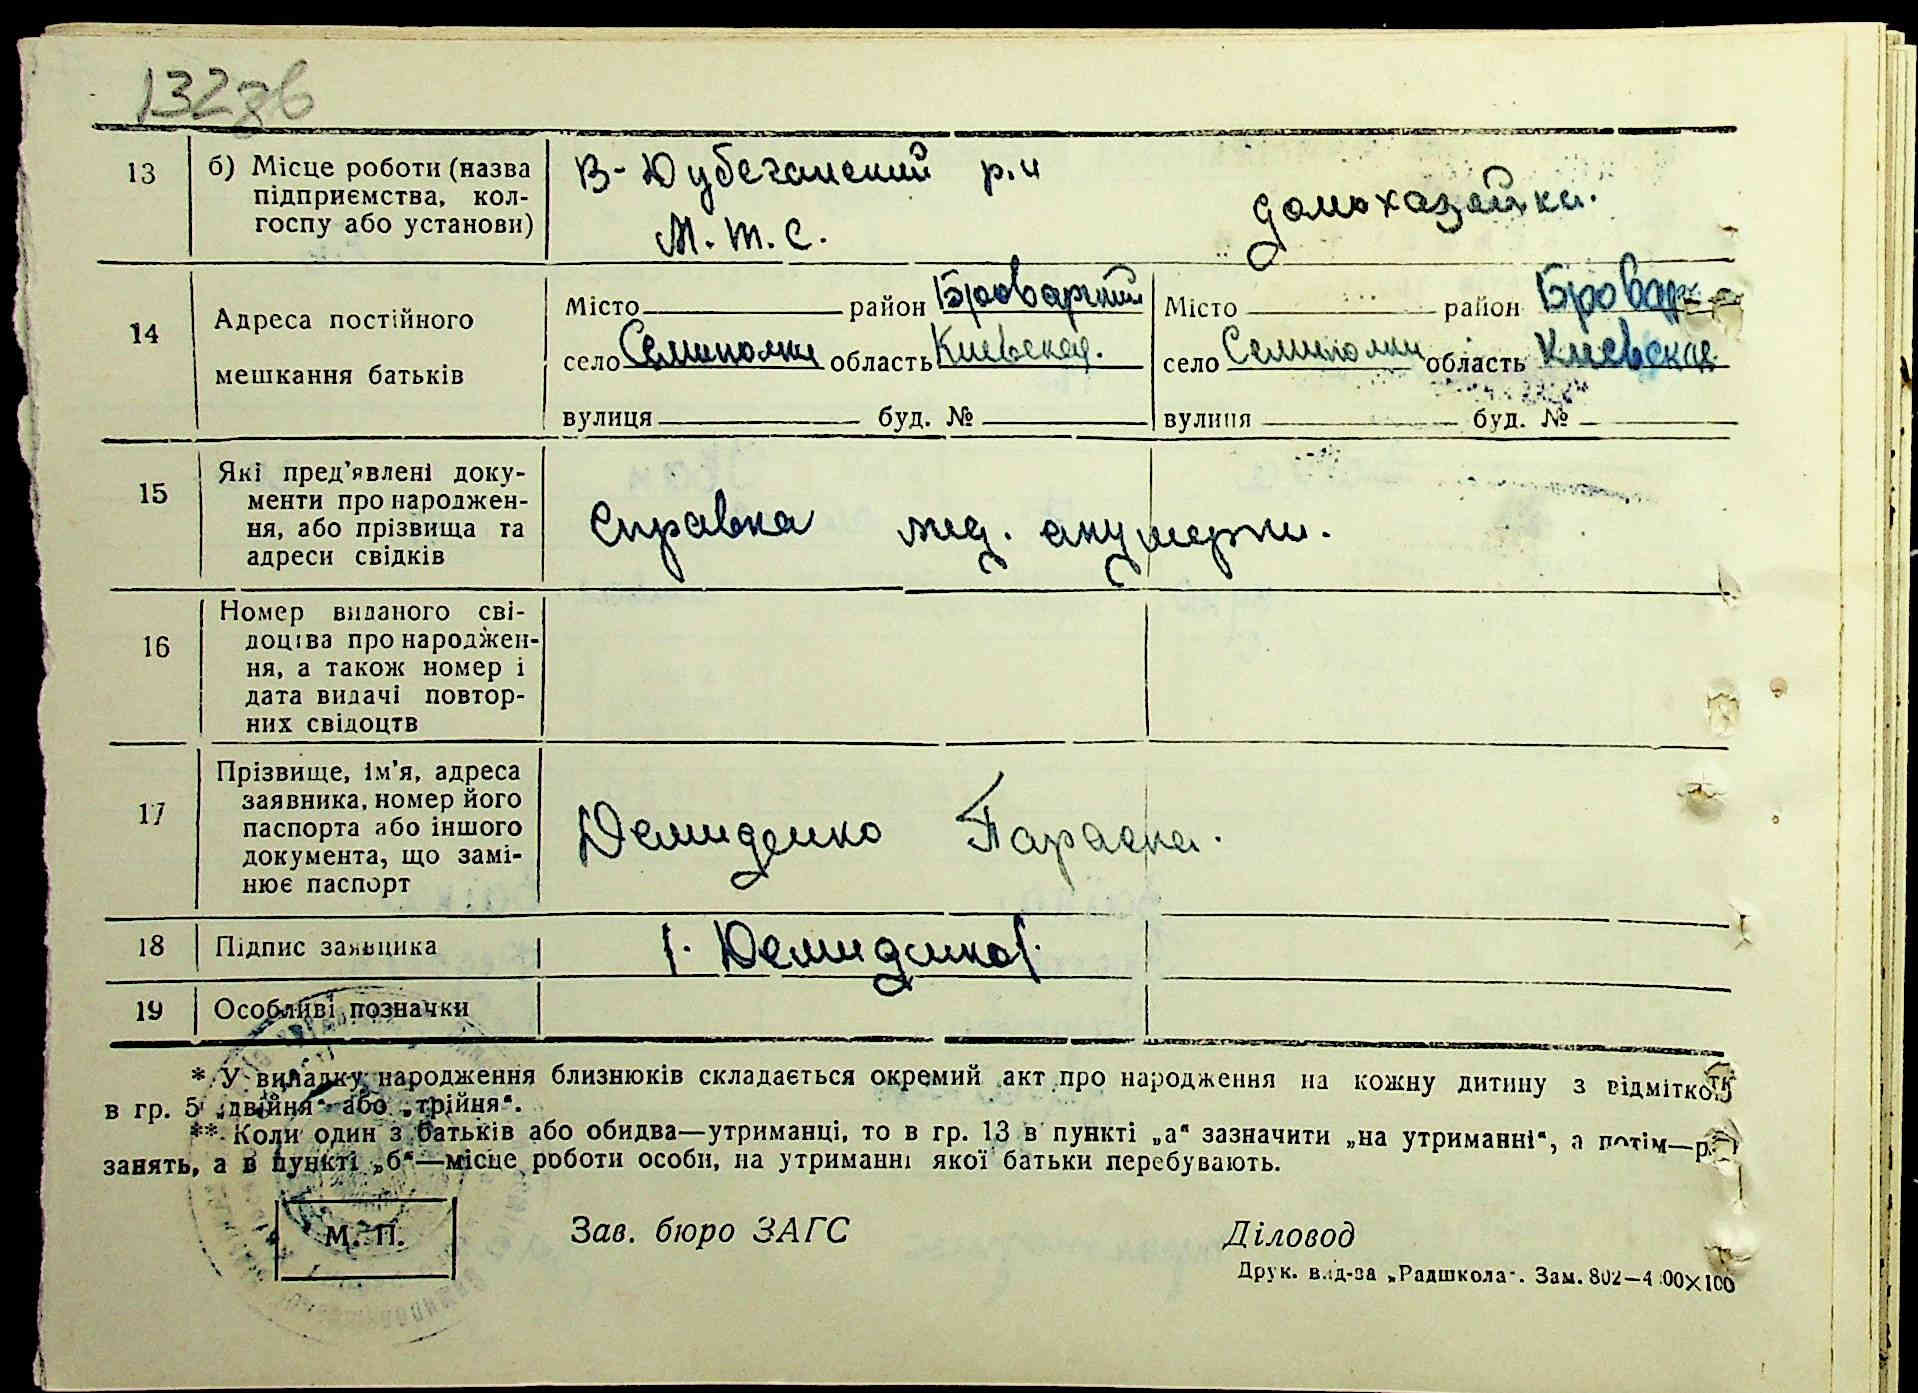 132зв
13 б) Місце роботи (назва підприємства, кол-госпу або установи)
В-Дубечанский р.н
М.т.с.
домохазайка.
14 Адреса постійного
мешкання батьків
Місто район Броварский
село Семиполки область Киевская.
вулиця буд. №
Місто район Бровар
село Семиполки область Киевская
вулиця буд. №
15 Які пред'явлені доку-
менти про народжен-
ня, або прізвища та
адреси свідків
Справка мед. акушерки.
16 Номер виданого сві-
доцтва про народжен-
ня, а також номер і
дата видачі повтор-
них свідоцтв
17 Прізвище, ім'я, адреса
заявника, номер його
паспорта або іншого
документа, що замі-
нює паспорт
Демиденко Параска.
18 Підпис заявника
Демиденко
19 Особливі позначки
* У випадку народження близнюків складається окремий акт про народження на кожну дитину з відміткою
в гр. 5 „двійня“ або „трійня“.
** Коли один з батьків або обидва—утриманці, то в гр. 13 в пункті „а“ зазначити „на утриманні“, а потім—
занять, а в пункті „б“—місце роботи особи, на утриманні якої батьки перебувають.
М. П.
Зав. бюро ЗАГС
Діловод
Друк. вид-ва „Радшкола“. Зам. 802—4 00×100